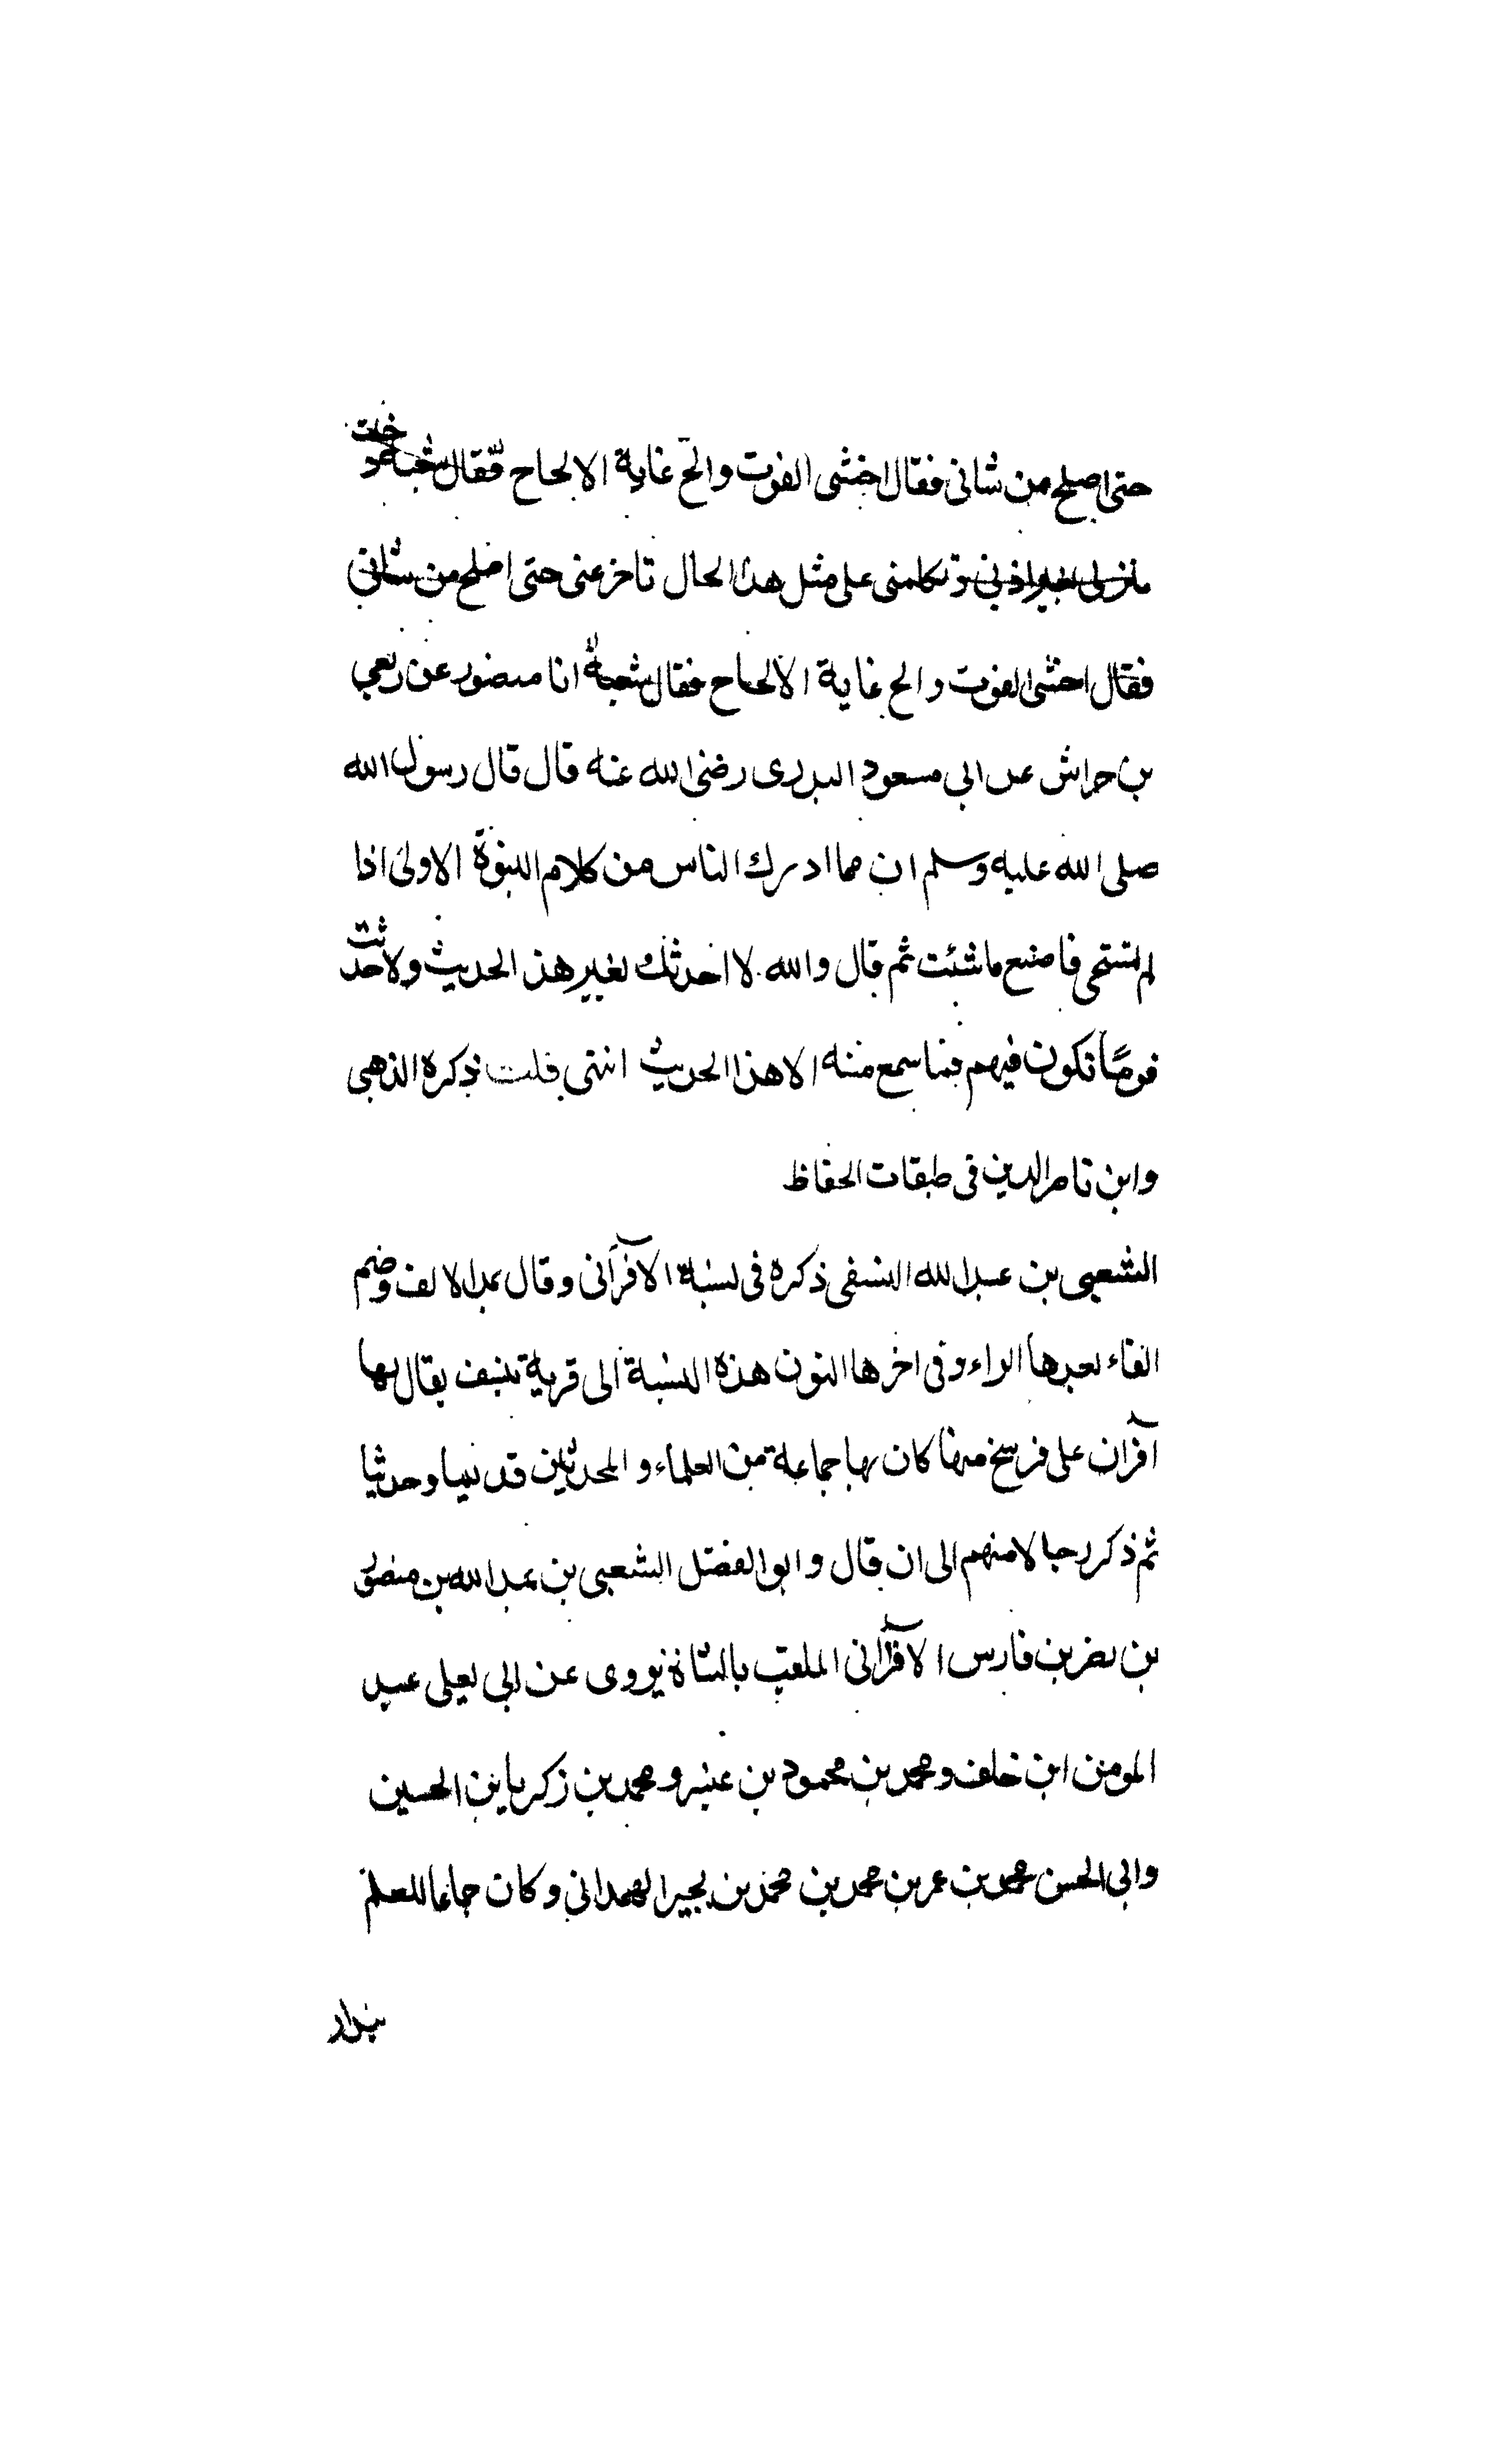 حتى اصلح من شانى فقال اخشى الفوت والح غاية الالحاح فقال شعبة
منزلى بغير اذنى وتكلمنى على مثل هذا الحال تاخر عنى حتى اصلح من شانى
فقال اخشى الفوت والح غاية الالحاح فقال شعبة انا منصور عن ربعي
بن حراش عن ابي مسعود البدرى رضى الله عنه قال قال رسول الله
صلى الله عليه وسلم ان مما ادرك الناس من كلام النبوة الاولى اذا
لم تستحى فاصنع ما شئت ثم قال والله لا احدثك لغير هذ الحديث ولاحدثت
قومًا تكون فيهم فما سمع منه الا هذا الحديث انتهى قلت ذكره الذهبى
وابن ناصر الدين فى طبقات الحفاظ
الشعبى بن عبد الله النسفى ذكره فى نسبة الآفرآنى وقال بمد الالف وضم
الفاء بعدها الراء وفى اخرها النون هذه النسبة الى قرية بنسف يقال لها
آفران على فرسخ منها كان بها جماعة من العلماء والمحدثين قديما وحديثا
ثم ذكر رجالا منهم الى ان قال وابو الفضل الشعبى بن عبد الله بن منصور
بن نصر بن فارس الآفرانى الملقب بالشاة يروى عن ابي يعلى عبد
المومن ابن خلف ومحمد بن محمود بن عنبر ومحمد بن زكريا بن الحسين
وابى الحسن محمد بن عمر بن محمد بن بجير الهمدانى وكان جماعا للعلم